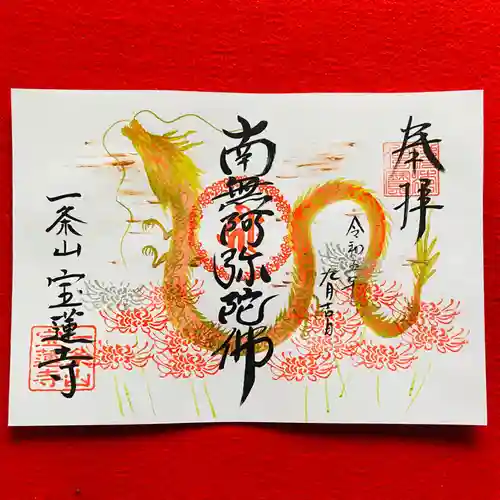 奉拝
令和五年
九月吉日
南無阿弥陀佛
一条山 宝蓮寺